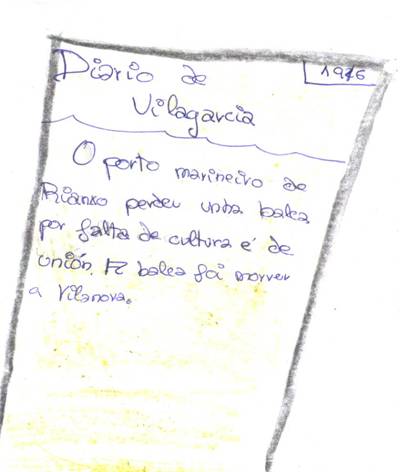 Diario de
1946
Vilagarcia
O porto marineiro de
Rianxo perdeu unha balea
por falta de cultura e de
unión. A balea foi morrer
a Vilanova.